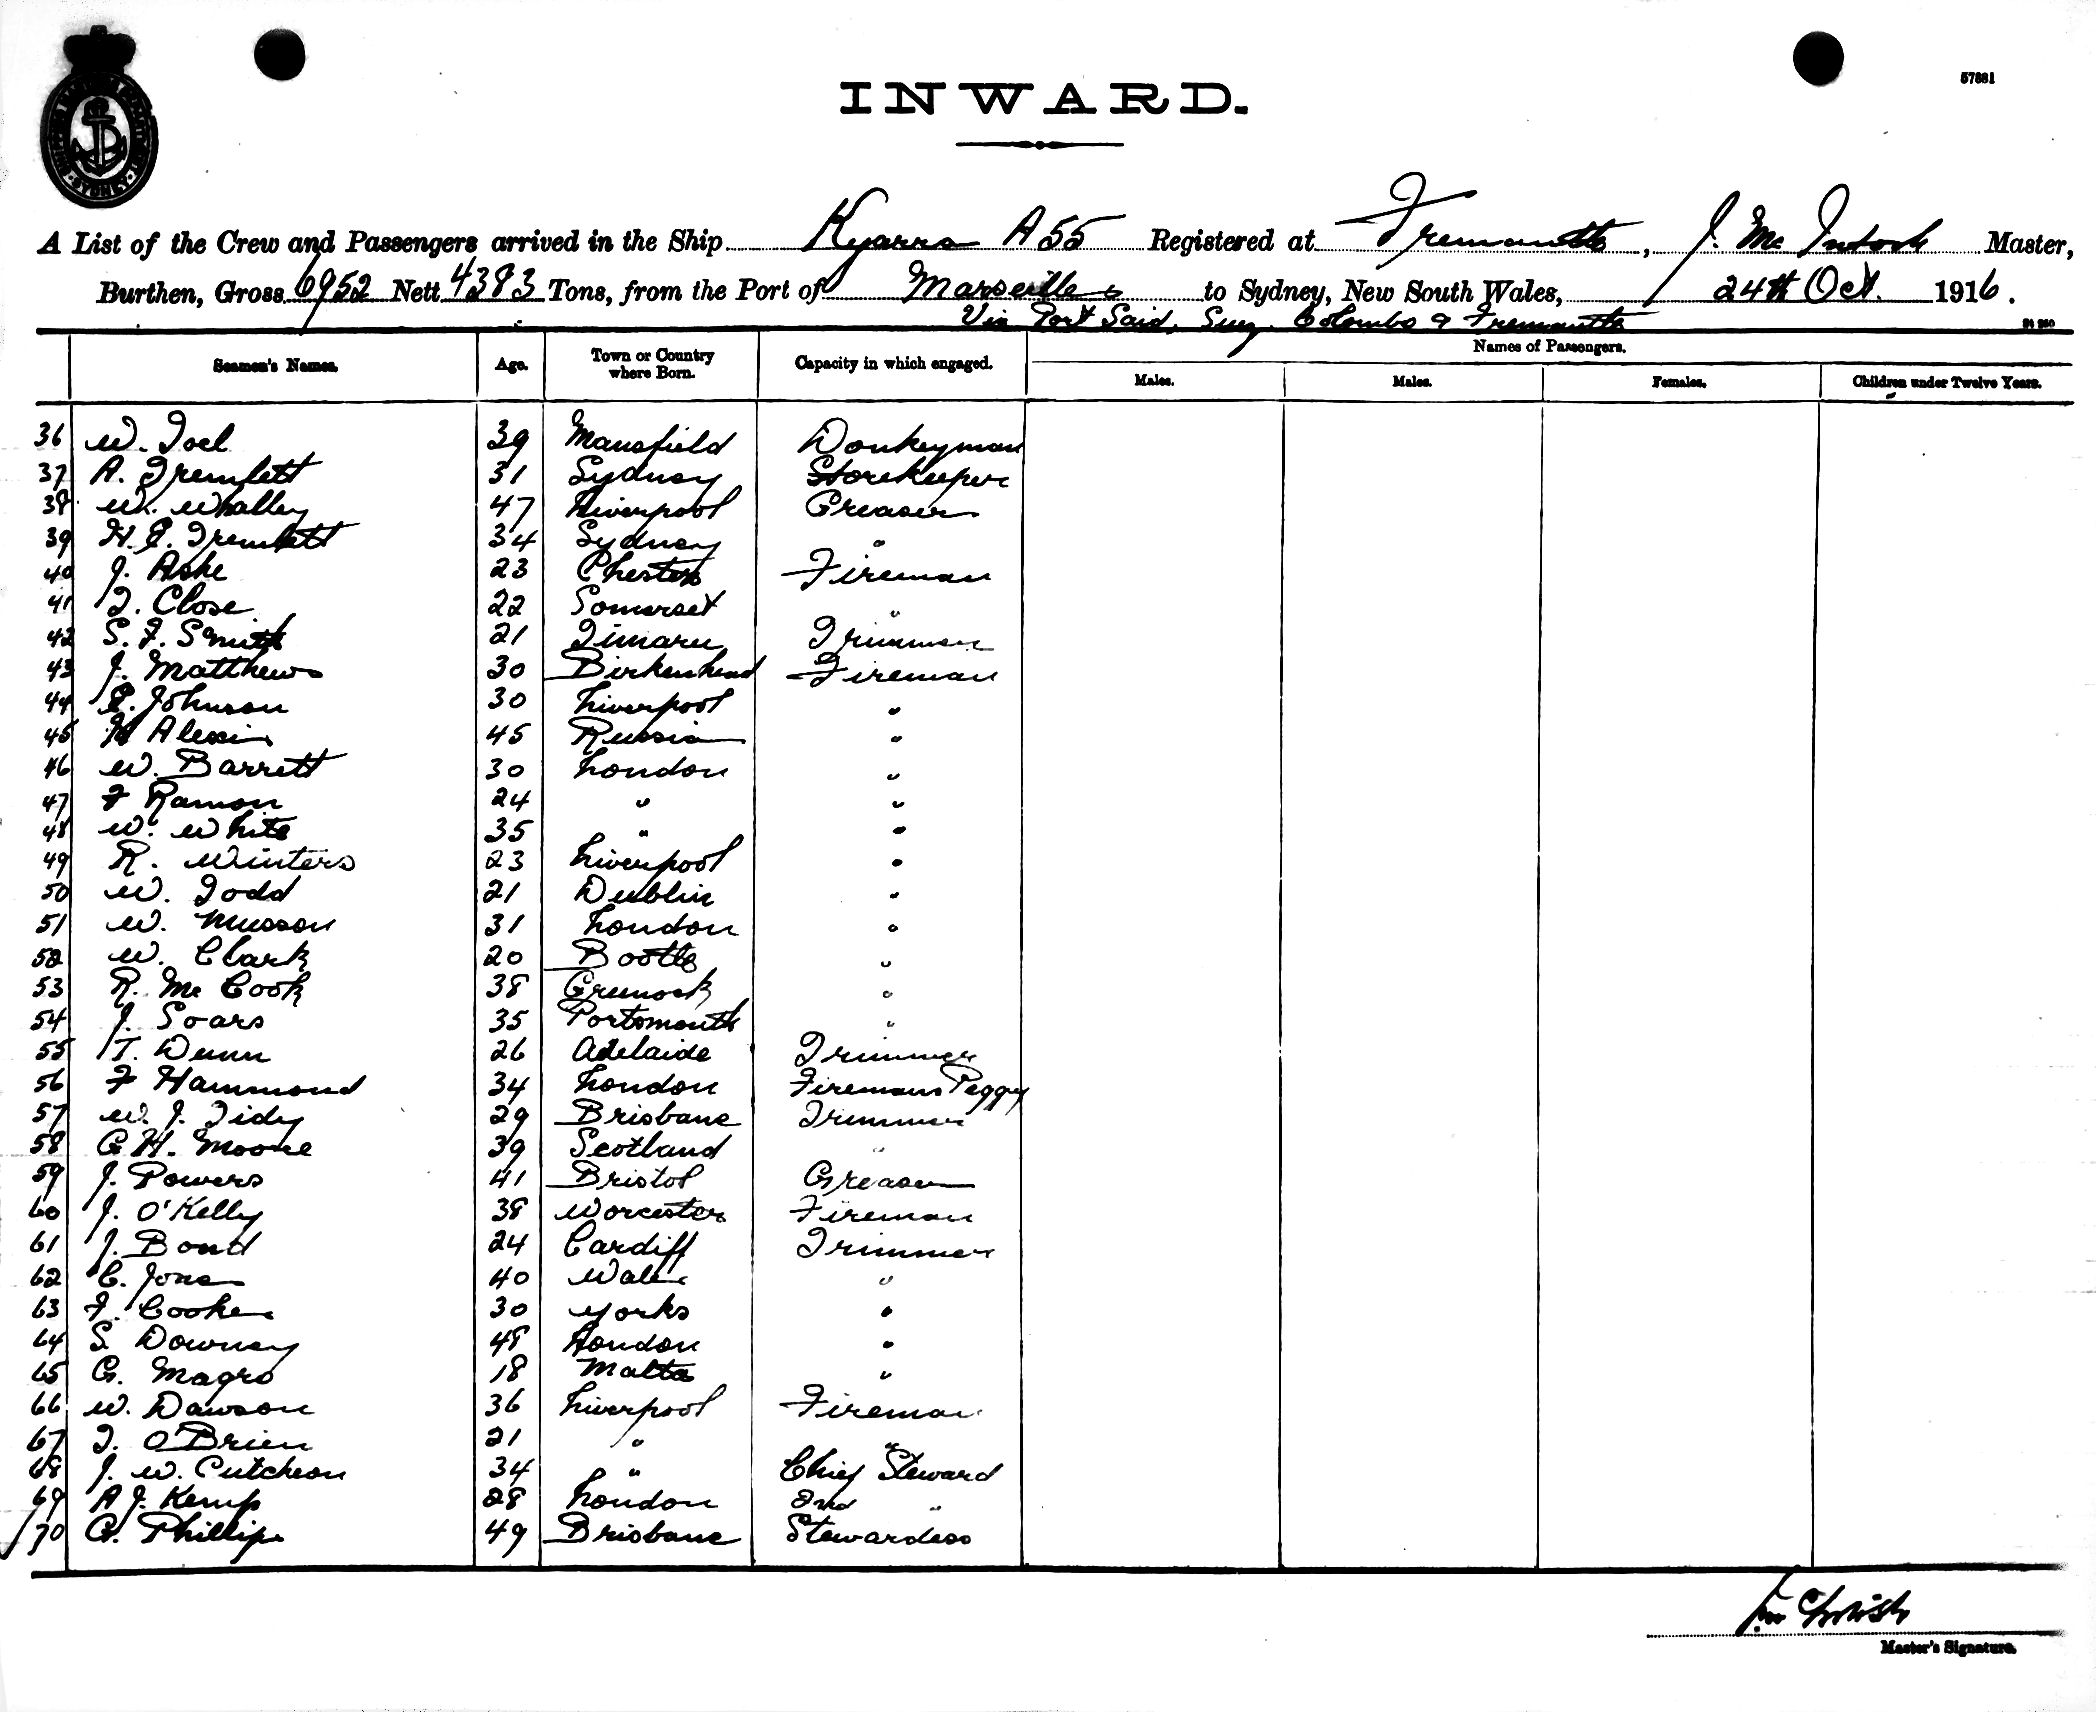 57881
INWARD.
A List of the Crew and Passengers arrived in the Ship Kyarra A55 Registered at Fremantle, J. Mc Intosh Master,
Burthen, Gross 6952 Nett 4383 Tons, from the Port of Marseilles to Sydney, New South Wales, 24th Oct. 1916.
Via Port Said, Suez, Colombo & Fremantle
Seamen's Names. Age. Town or Country where Born. Capacity in which engaged. Names of Passengers.
Males. Males. Females. Children under Twelve Years.
36 W. Joel 39 Mansfield Donkeyman
37 A. Tremlett 31 Sydney Storekeeper
38 W. Whalley 47 Liverpool Greaser
39 H. E. Tremlett 34 Sydney "
40 J. Ashe 23 Chester Fireman
41 T. Close 22 Somerset "
42 S. F. Smith 21 Timaru Trimmer
43 J. Matthews 30 Birkenhead Fireman
44 E. Johnson 30 Liverpool "
45 Alexin 45 Russia "
46 W. Barrett 30 London "
47 F Ramon 24 " "
48 W. White 35 " "
49 R. Winters 23 Liverpool "
50 W. Todd 21 Dublin "
51 W. Musson 31 London "
52 W. Clark 20 Bootle "
53 R. Mc Cook 38 Greenock "
54 J. Soars 35 Portsmouth "
55 T. Dunn 26 Adelaide Trimmer
56 F Hammond 34 London Firemans Peggy
57 W. J. Tidy 29 Brisbane Trimmer
58 G H. Moore 39 Scotland "
59 J. Powers 41 Bristol Greaser
60 J. O'Kelly 38 Worcester Fireman
61 J. Bond 24 Cardiff Trimmer
62 C. Jones 40 Wales "
63 F. Cooke 30 Yorks "
64 S. Downey 48 London "
65 G. Magro 18 Malta "
66 W. Dawson 36 Liverpool Fireman
67 T. O'Brien 21 " "
68 J. W. Cutcheon 34 " Chief Steward
69 A J. Kemp 28 London 2nd "
70 G. Phillips 49 Brisbane Stewardess
Master's Signature.